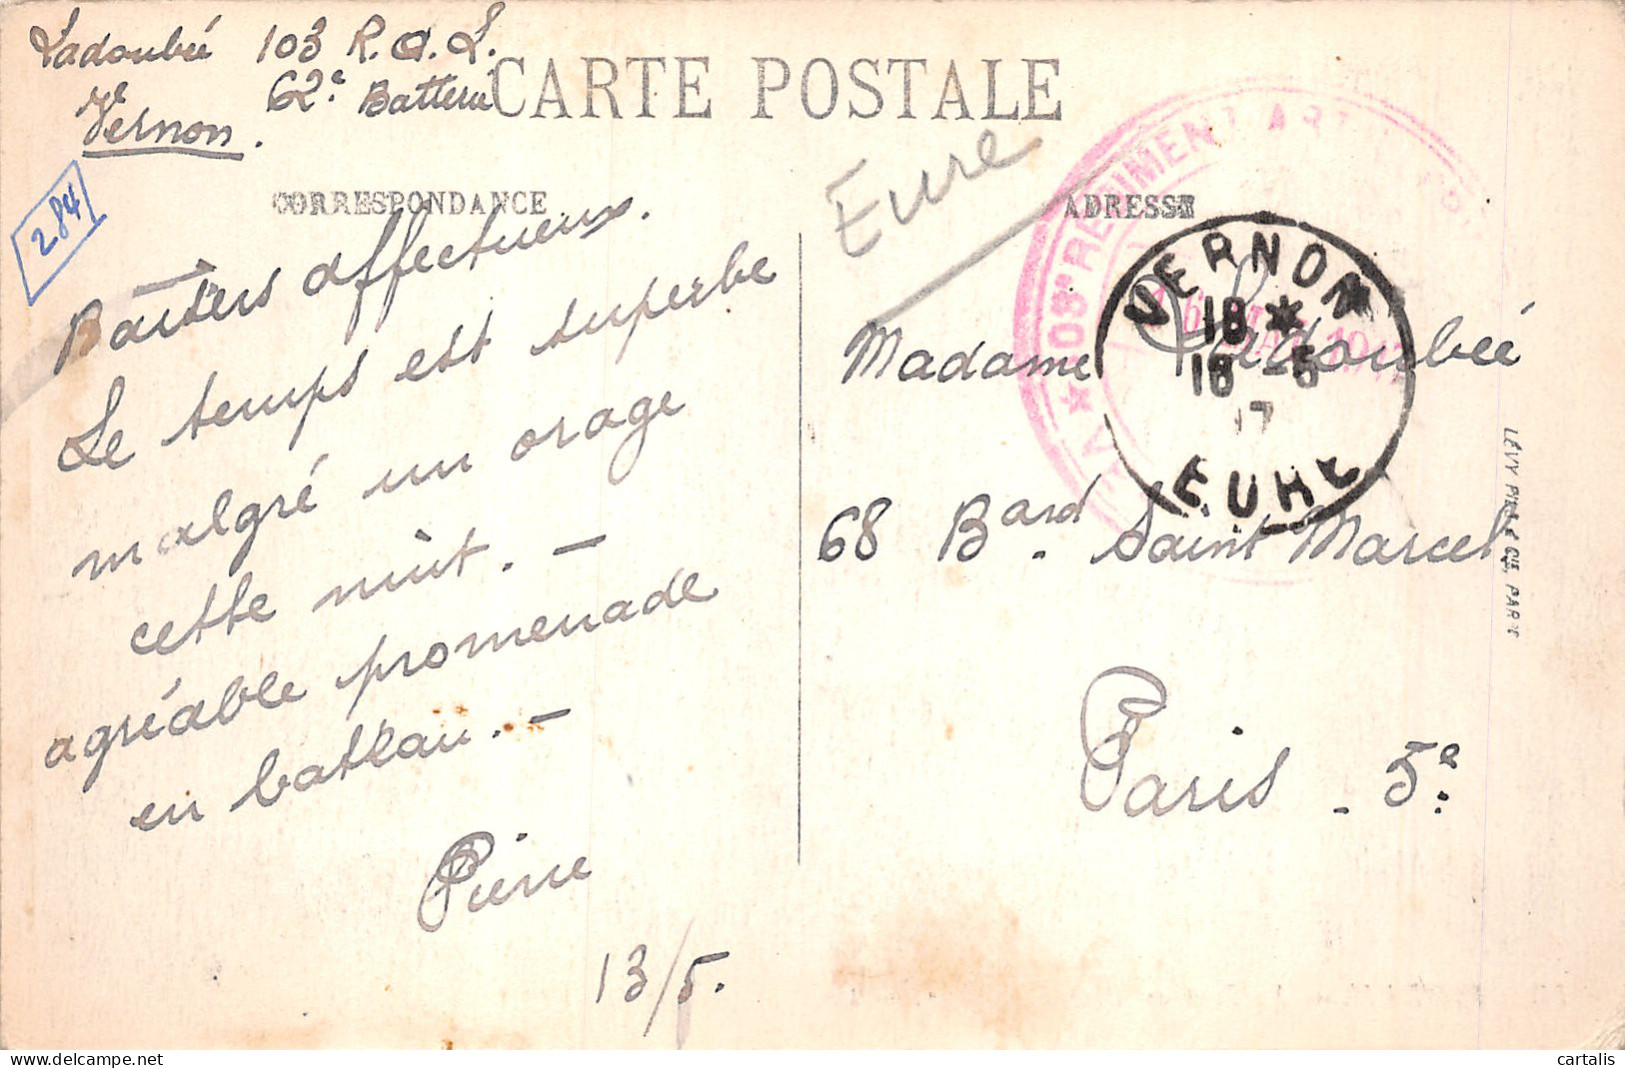 Ladoubée 103 R.A.L.
62e. Batterie
Vernon.
CARTE POSTALE
284
CORRESPONDANCE
ADRESSE
Eure
Baisers affectueux.
Le temps est superbe
malgré un orage
cette nuit. —
agréable promenade
en bateau. —
Pierre
13/5.
103e REGIMENT
VERNON
18 *
16 - 5
17
EURE
Madame Ladoubée
68 Bard. Saint Marcel
Paris - 5e.
LEVY FILS & Cie, PARIS
cartalis